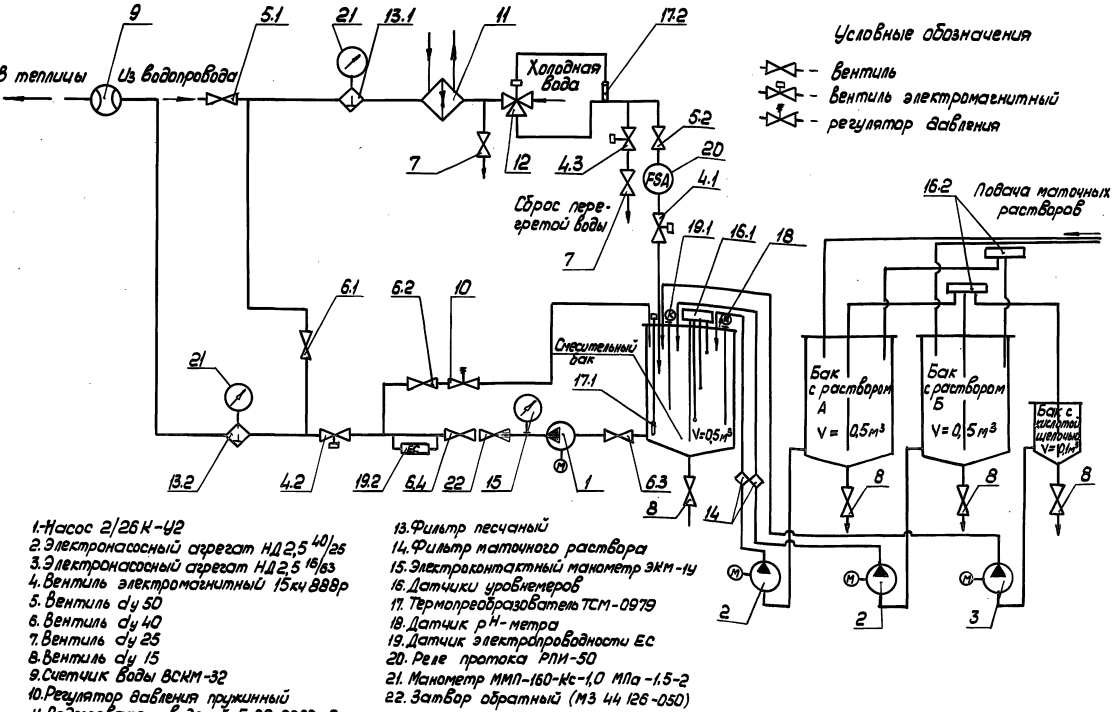 9
5.1
21
13.1
11
17.2
Условные обозначения
В теплицы
Из водопровода
Холодная
вода
- вентиль
- вентиль электромагнитный
- регулятор давления
7
12
4.3
5.2
20
FSA
4.1
Сброс пере-
гретой воды
7
19.1
16.1
18
16.2
Подача маточных
растворов
6.1
6.2
10
21
Смесительный
бак
17.1
V=0,5м³
Бак
с раствором
А
V= 0,5м³
Бак
с раствором
Б
V=0,5м³
Бак с
кислотой
щелочью
V=0,1м³
13.2
4.2
19.2
EC
6.4
22
15
М
1
6.3
8
14
8
8
8
М
2
М
2
М
3
1.-Насос 2/26К-У2
2. Электронасосный агрегат НД 2,5 40/25
3. Электронасосный агрегат НД 2,5 16/63
4. Вентиль электромагнитный 15кч 888р
5. Вентиль dy 50
6. Вентиль dy 40
7. Вентиль dy 25
8. Вентиль dy 15
9. Счетчик воды ВСКМ-32
10. Регулятор давления пружинный
13. Фильтр песчаный
14. Фильтр маточного раствора
15. Электроконтактный манометр ЭКМ-1У
16. Датчики уровнемеров
17. Термопреобразователь ТСМ-0979
18. Датчик pH-метра
19. Датчик электропроводности ЕС
20. Реле протока РПИ-50
21. Манометр ММП-160-Кс-1,0 МПа-1.5-2
22. Затвор обратный (МЗ 44 126-050)